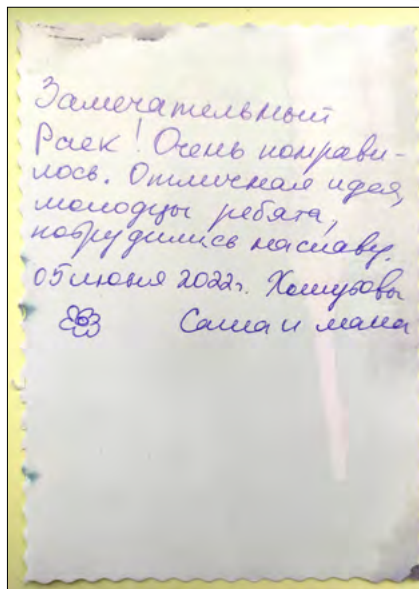 Замечательный
Раек! Очень понрави-
лось. Отличная идея,
молодцы ребята,
потрудились наславу.
05 июня 2022г.
Саша и мама